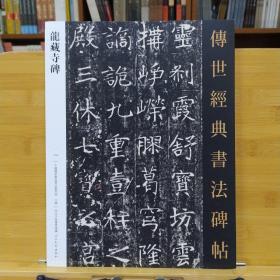 傳世經典書法碑帖
龍藏寺碑
靈刹霞舒寶坊雲
構峥嶸膠葛穹隆
譎詭九重壹柱之
殿三休七寶之宮